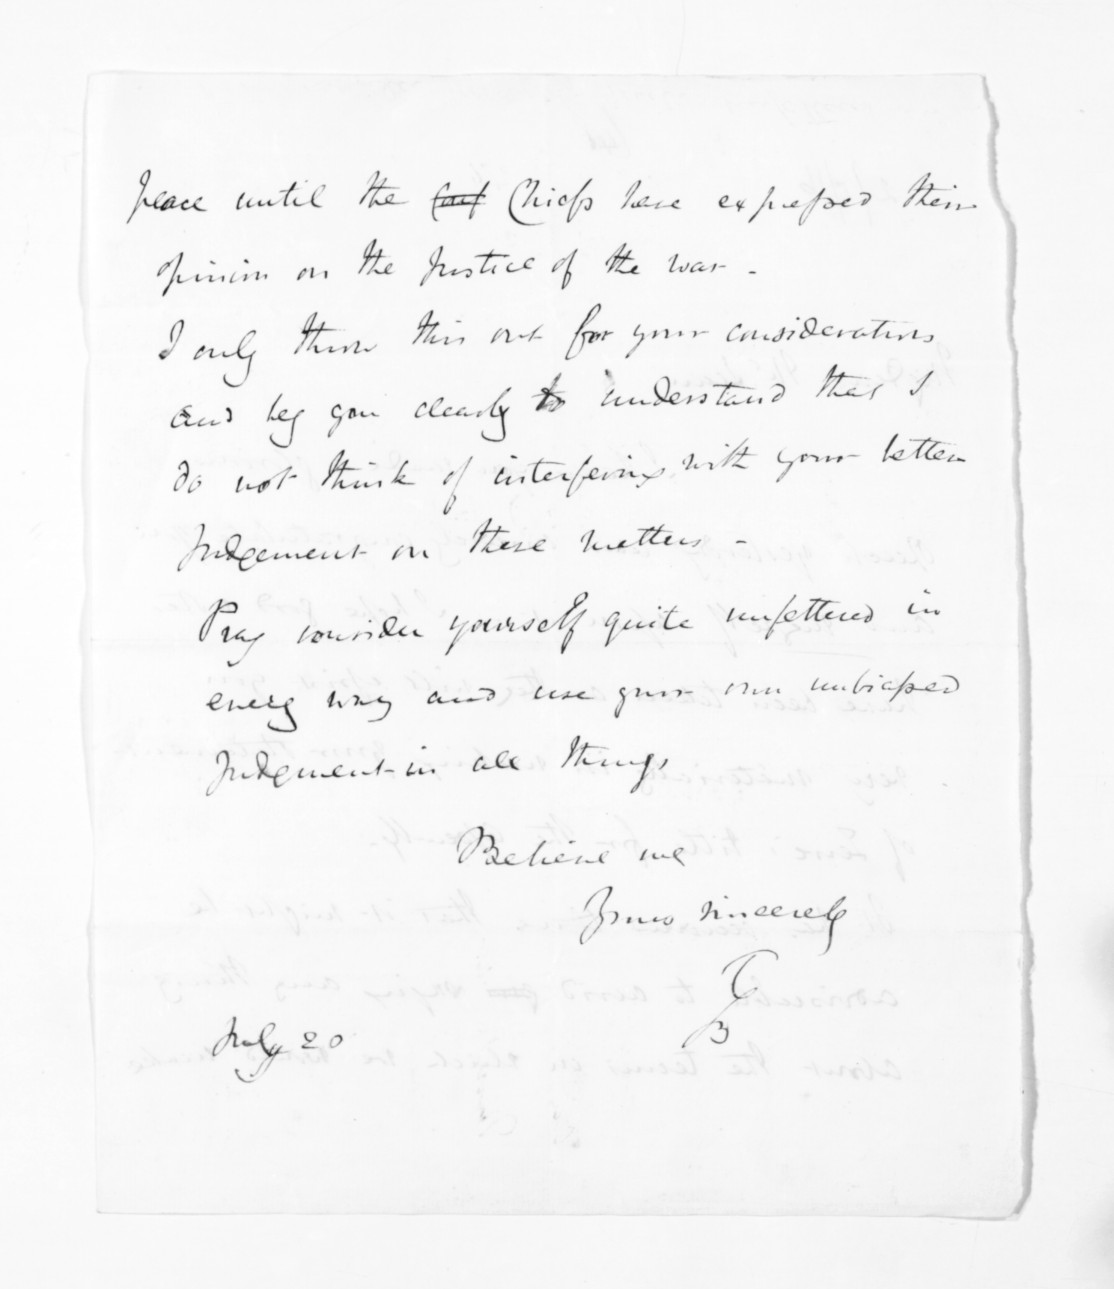 peace until the Chiefs have expressed their
opinion on the Justice of the war -
I only throw this out for your consideration
and beg you clearly to understand that I
do not think of interfering with your better
Judgement on these matters -
Pray consider yourself quite unfettered in
every way and use your own unbiassed
Judgment in all things
Believe me
Yours sincerely
TGB
July 20